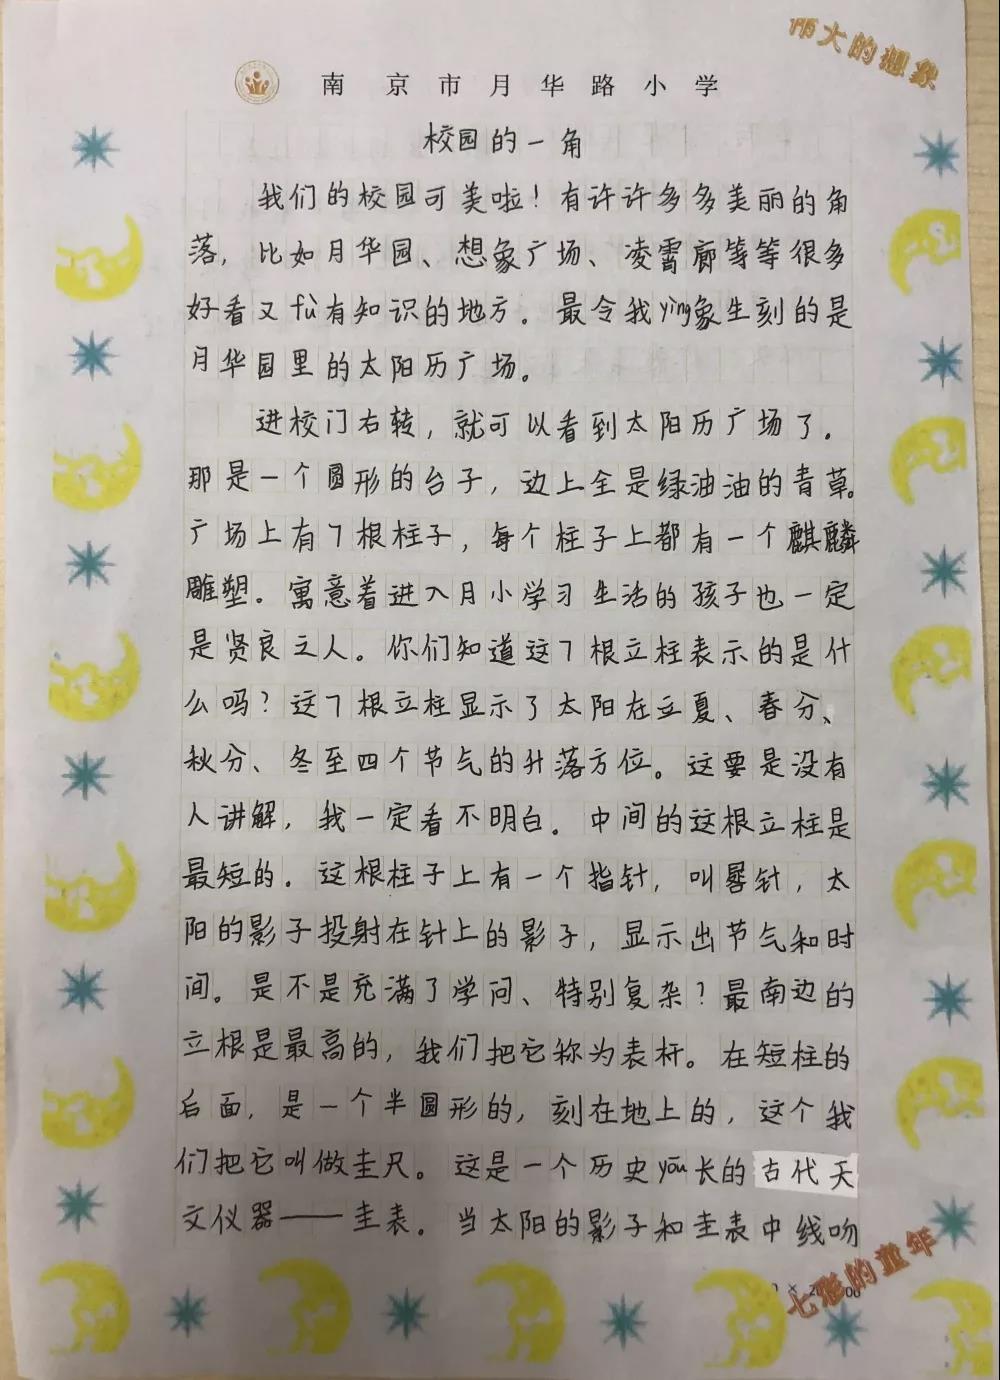 伟大的想象
南京市月华路小学
校园的一角
我们的校园可美啦！有许许多多美丽的角
落，比如月华园、想象广场、凌霄廊等等很多
好看又fù有知识的地方。最令我yìng象生刻的是
月华园里的太阳历广场。
进校门右转，就可以看到太阳历广场了。
那是一个圆形的台子，边上全是绿油油的青草。
广场上有7根柱子，每个柱子上都有一个麒麟
雕塑。寓意着进入月小学习生活的孩子也一定
是贤良之人。你们知道这7根立柱表示的是什
么吗？这7根立柱显示了太阳在立夏、春分、
秋分、冬至四个节气的升落方位。这要是没有
人讲解，我一定看不明白。中间的这根立柱是
最短的。这根柱子上有一个指针，叫晷针，太
阳的影子投射在针上的影子，显示出节气和时
间。是不是充满了学问、特别复杂？最南边的
立根是最高的，我们把它称为表杆。在短柱的
后面，是一个半圆形的，刻在地上的，这个我
们把它叫做圭尺。这是一个历史yōu长的古代天
文仪器——圭表。当太阳的影子和圭表中线吻
七彩的童年